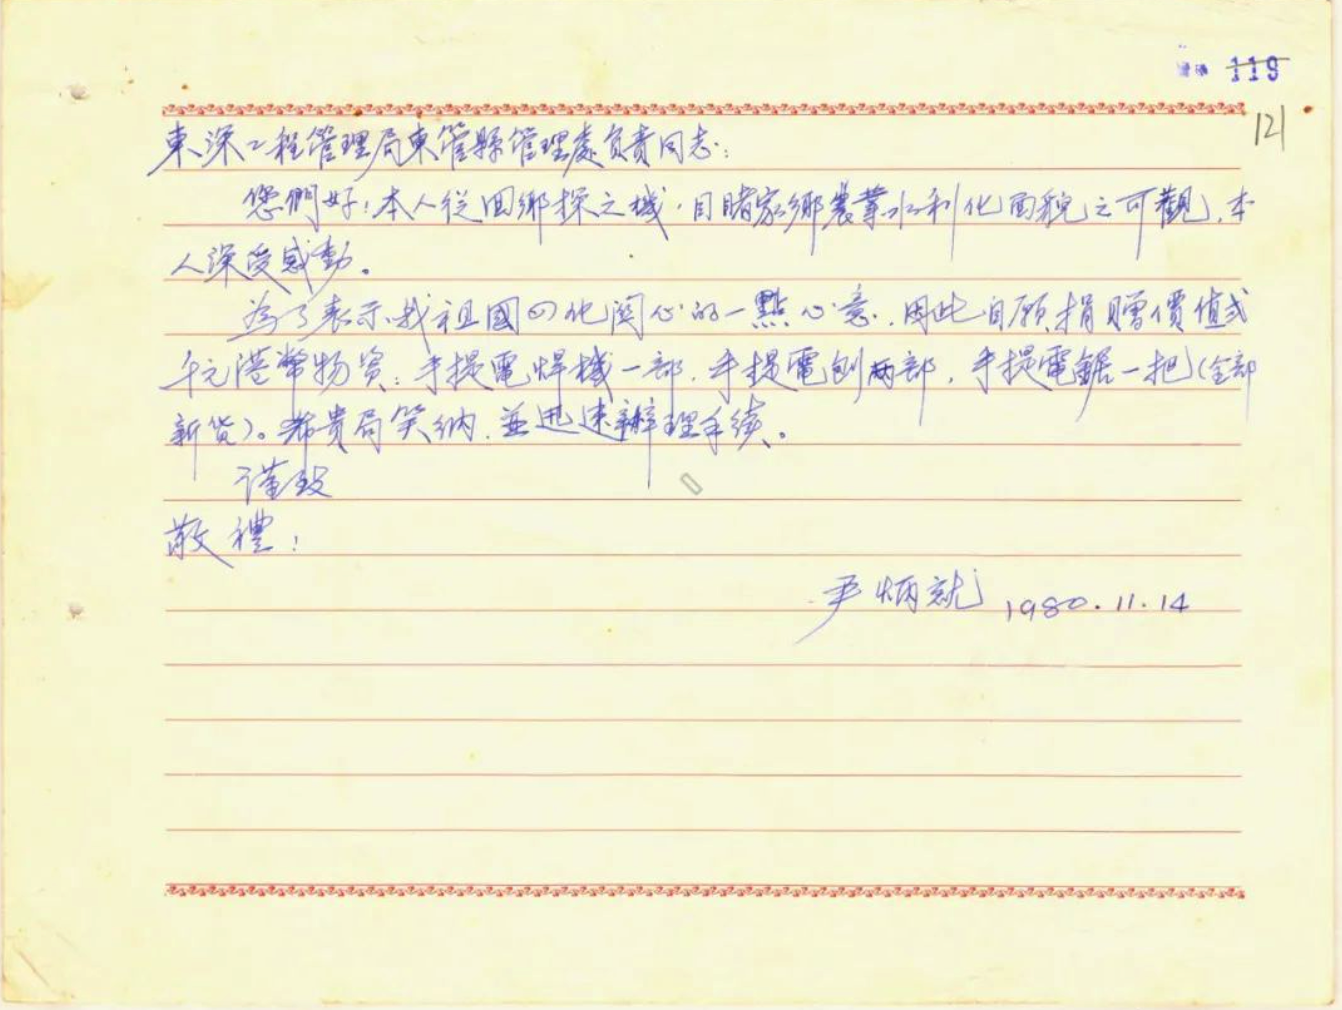 119
121
東深工程管理局東管縣管理處負責同志：
您們好！本人從回鄉探之機，目睹家鄉農業水利化面貌之可觀，本
人深受感動。
為了表示我祖國四化関心的一點心意，因此自願捐贈價值弍
千元港幣物资：手提電焊機一部，手提電刨兩部，手提電鋸一把（全部
新货）。希貴局笑纳，並迅速辦理手续。
谨致
敬禮！
尹炳就 1980.11.14